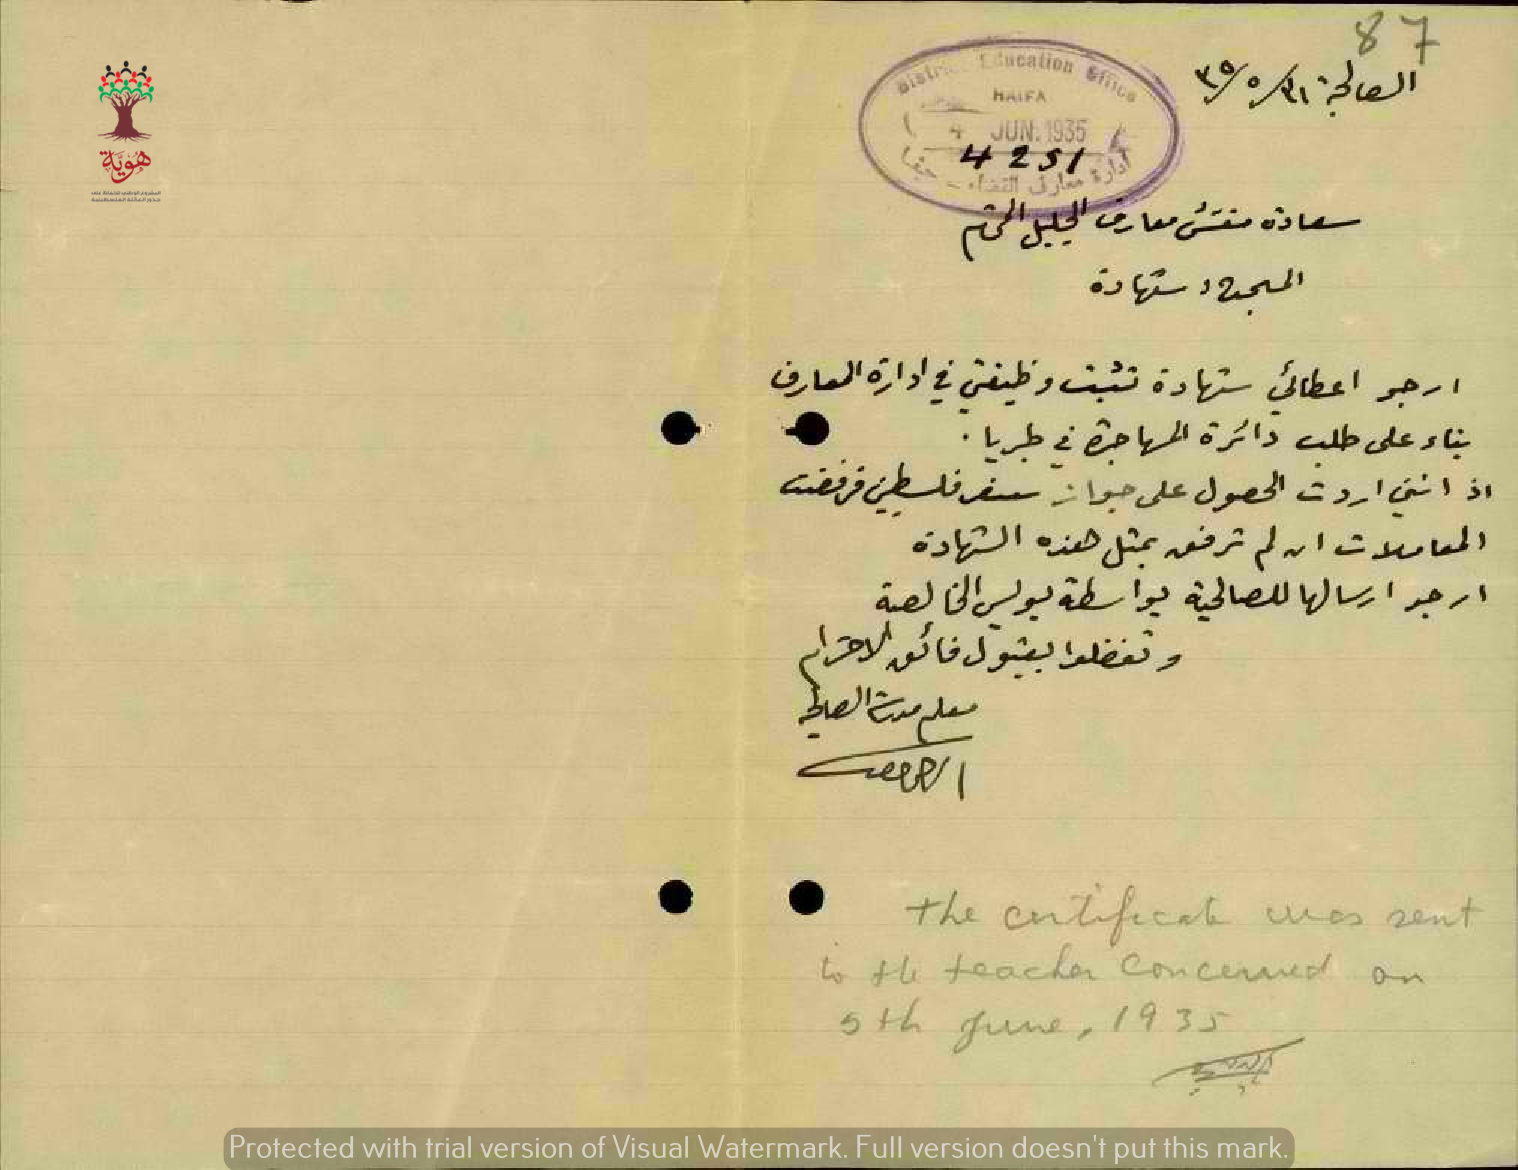 87
الصالحية ٣١/٥/٣٥
District Education Office
HAIFA
4 JUN. 1935
4251
ادارة معارف القضاء - حيفا
سعادة مفتش معارف الجليل المحترم
المبحث: شهادة
ارجو اعطائي شهادة تثبت وظيفتي في ادارة المعارف
بناء على طلب دائرة المهاجرة في طبريا.
اذ انني اردت الحصول على جواز سفر فلسطيني فرفضت
المعاملات ان لم ترفق بمثل هذه الشهادة
ارجو ارسالها للصالحية بواسطة بوليس الخالصة
وتفضلوا بقبول فائق الاحترام
معلم مدرسة الصالحية
the certificate was sent
to the teacher concerned on
5th June, 1935
هُوِيَّة
المشروع الوطني للحفاظ على
جذور العائلة الفلسطينية
Protected with trial version of Visual Watermark. Full version doesn't put this mark.